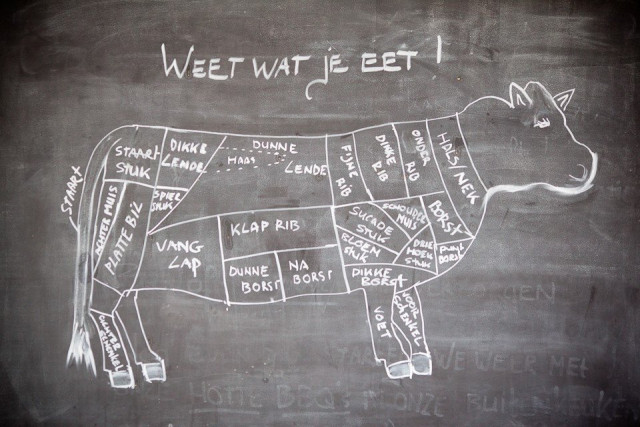 WEET WAT je EET !
STAART
STAART
STUK
DIKKE
LENDE
DUNNE
HAAS
LENDE
FIJNE
RIB
DIKKE
RIB
ONDER
RIB
HALS/NEK
SPIER
STUK
PLATTE BIL
VANG
LAP
KLAP RIB
DUNNE
BORST
NA
BORST
SUCADE
STUK
SCHOUDER
MUIS
BORST
BLOEM
STUK
DRIE
HOEK
STUK
PUNT
BORST
DIKKE
BORST
VOET
VOOR
SCHENKEL
ACHTER
SCHENKEL
WE WEER MET
HOTTE BBQ's
ONZE BUITENKEUKEN